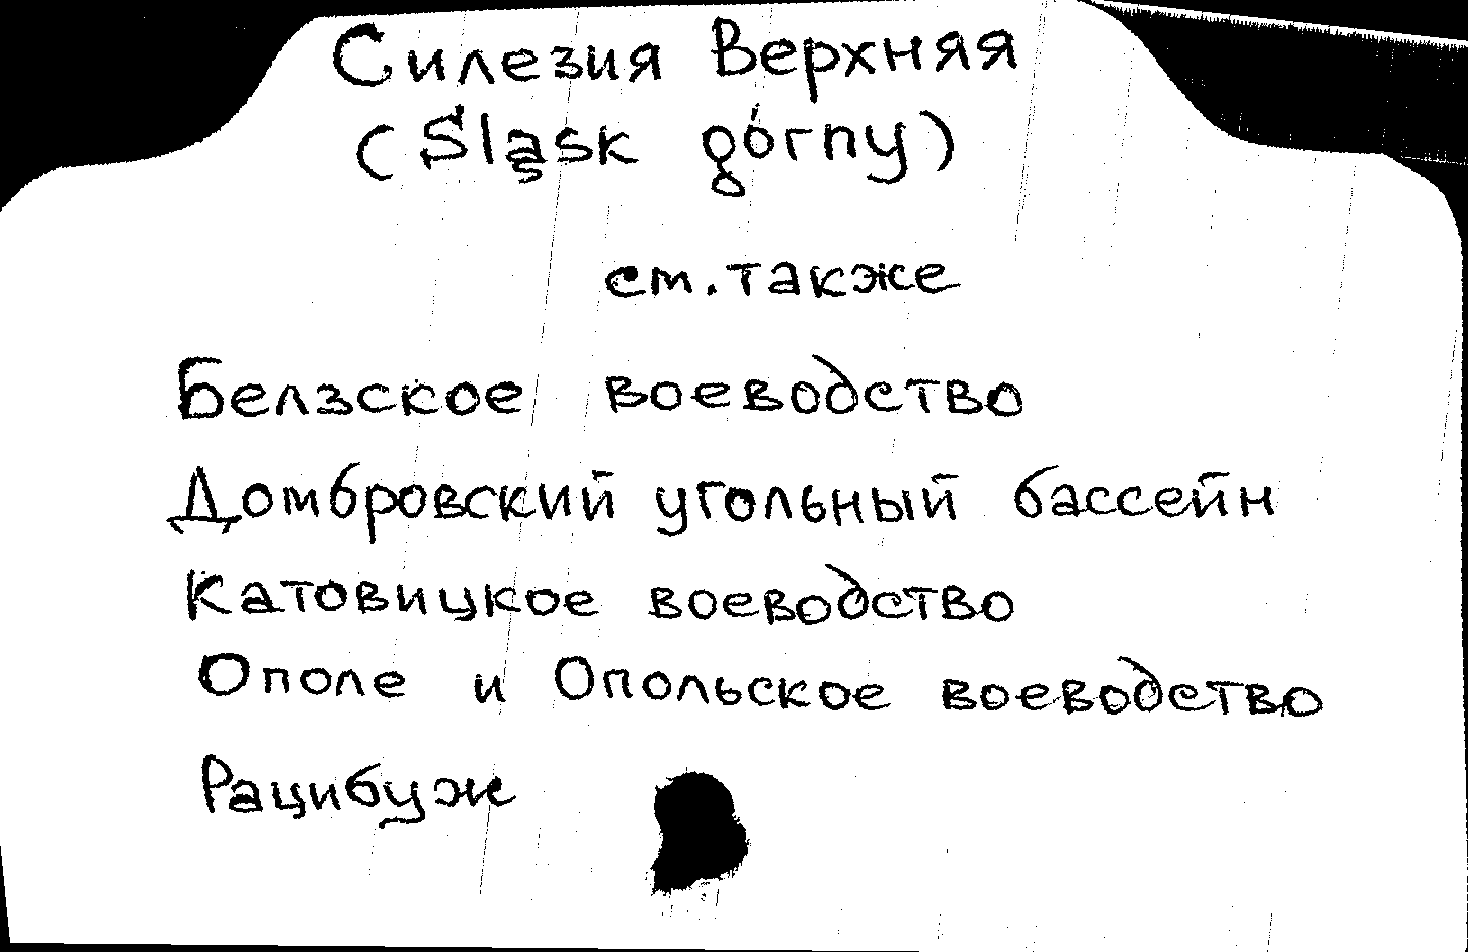 Силезия Верхняя
(Śląsk górny)
см. также
Белзское воеводство
Домбровский угольный бассейн
Катовицкое воеводство
Ополе и Опольское воеводство
Рацибуж